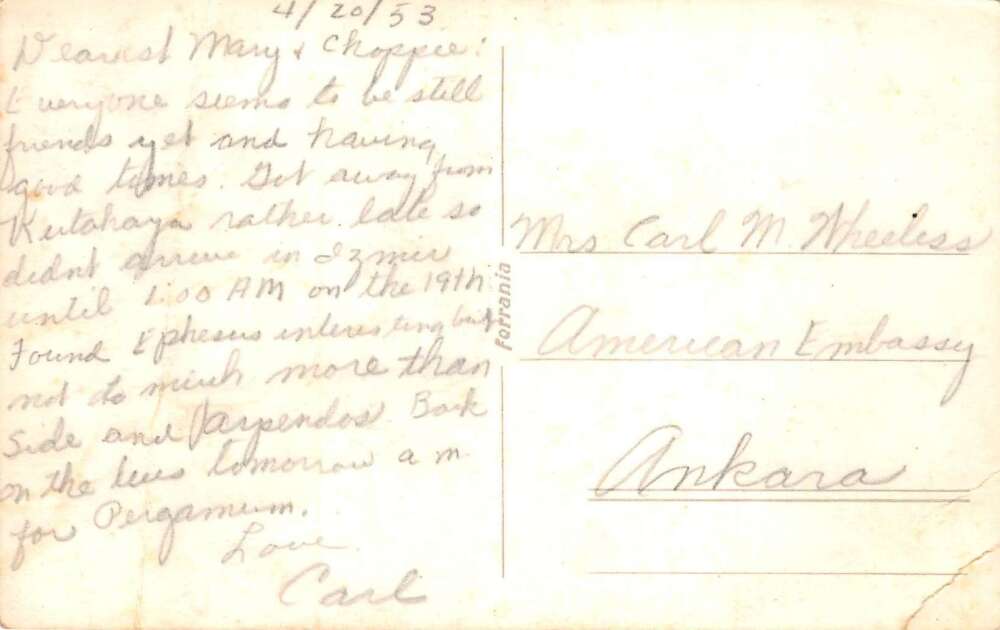 4/20/53
Dearest Mary & Choppie:
Everyone seems to be still
friends yet and having
good times. Got away from
Kutahaya rather late so
didn't arrive in Izmir
until 1:00 AM on the 19th.
Found Ephesus interesting but
not so much more than
Side and Aspendos. Back
on the bus tomorrow a m
for Pergamum.
Love
Carl
Forrania
Mrs Carl M. Wheeless
American Embassy
Ankara